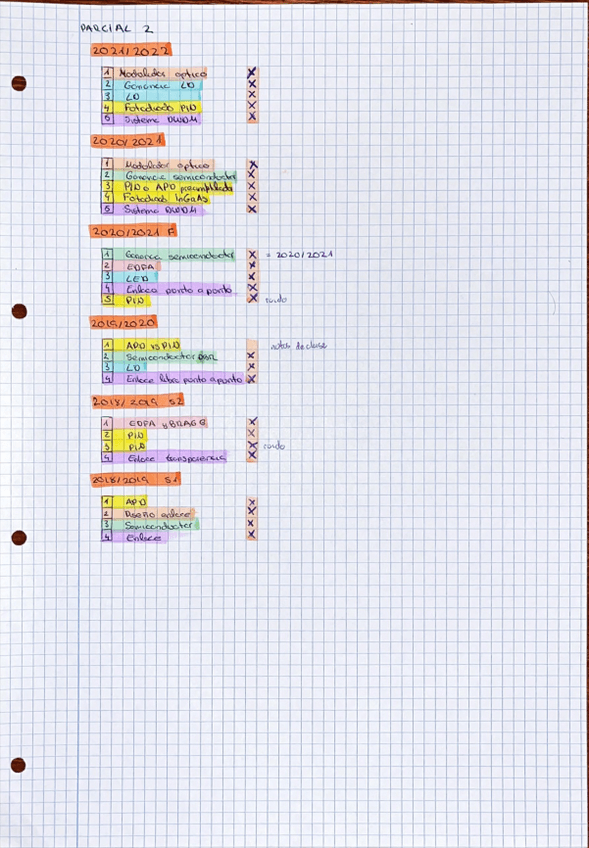 PARCIAL 2
2021/2022
1 Modulador optico X
2 Ganancia LD X
3 LD X
4 Fotodiodo PIN X
5 Sistema DWDM X
2020/2021
1 Modulador optico X
2 Ganancia semiconductor X
3 PIN o APD preamplificado X
4 Fotodiodo InGaAs X
5 Sistema DWDM X
2020/2021 F
1 Ganancia semiconductor X = 2020/2021
2 EDFA X
3 LED X
4 Enlace punto a punto X
5 PIN X ruido
2019/2020
1 APD vs PIN notas de clase
2 Semiconductor DBR X
3 LD X
4 Enlace fibra punto a punto X
2018/2019 S2
1 EDFA y BRAGG X
2 PIN X
3 PIN X ruido
4 Enlace transparencia X
2018/2019 S1
1 APD X
2 Diseño enlace X
3 Semiconductor X
4 Enlace X